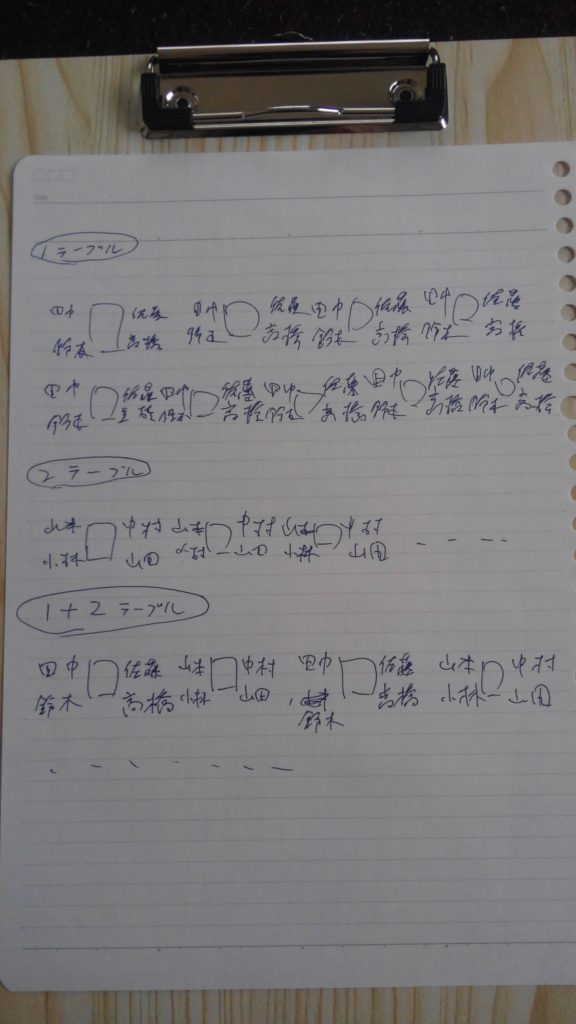 1テーブル
田中 佐藤 田中 佐藤 田中 佐藤 田中 佐藤
鈴木 高橋 鈴木 高橋 鈴木 高橋 鈴木 高橋
田中 佐藤 田中 佐藤 田中 佐藤 田中 佐藤 田中 佐藤
鈴木 高橋 鈴木 高橋 鈴木 高橋 鈴木 高橋 鈴木 高橋
2テーブル
山本 中村 山本 中村 山本 中村
小林 山田 山田 小林 山田
1+2テーブル
田中 佐藤 山本 中村 田中 佐藤 山本 中村
鈴木 高橋 小林 山田 高橋 小林 山田
鈴木